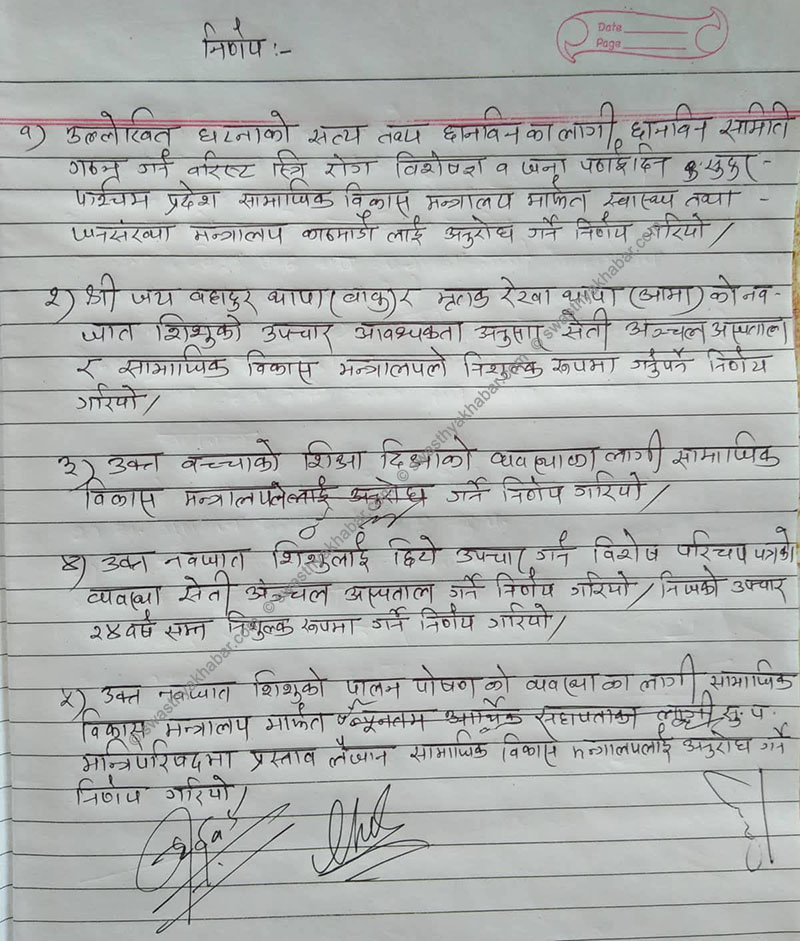 Date
Page
निर्णय :-
१) उल्लेखित घटनाको सत्य तथ्य छानविनका लागी छानविन समिति
गठन गर्न वरिष्ट स्त्रि रोग विशेषज्ञ १ जना पठाईदिन सुदुर-
पश्चिम प्रदेश सामाजिक विकास मन्त्रालय मार्फत स्वास्थ्य तथा -
जनसंख्या मन्त्रालय काठमाडौ लाई अनुरोध गर्ने निर्णय गरियो /
२) श्री जय वहादुर थापा (बाबु) र मृतक रेखा थापा (आमा) को नव-
जात शिशुको उपचार आवश्यकता अनुसार सेती अञ्चल अस्पताल
र सामाजिक विकास मन्त्रालयले निशुल्क रूपमा गर्नुपर्ने निर्णय
गरियो /
३) उक्त बच्चाको शिक्षा दिक्षाको व्यवस्थाका लागी सामाजिक
विकास मन्त्रालयलेलाई अनुरोध गर्ने निर्णय गरियो /
४) उक्त नवजात शिशुलाई छिटो उपचार गर्न विशेष परिचय पत्रको
व्यवस्था सेती अञ्चल अस्पताल गर्ने निर्णय गरियो / निजको उपचार
२४ वर्ष सम्म निशुल्क रूपमा गर्ने निर्णय गरियो /
५) उक्त नवजात शिशुको पालन पोषण को व्यवस्था का लागी सामाजिक
विकास मन्त्रालय मार्फत न्यूनतम आर्थिक सहायताका लागी सु. प.
मन्त्रिपरिषदमा प्रस्ताव लैजान सामाजिक विकास मन्त्रालयलाई अनुरोध गर्ने
निर्णय गरियो /
© swasthyakhabar.com